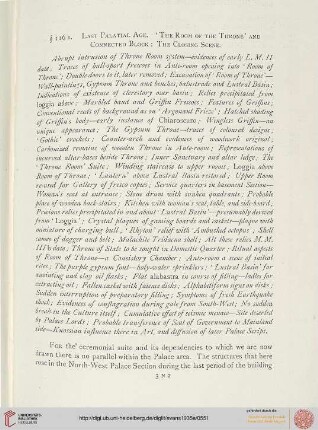 § 116 A. LAST PALATIAL AGE. 'THE ROOM OF THE THRONE' AND
CONNECTED BLOCK; THE CLOSING SCENE.
Abrupt intrusion of Throne Room system—evidences of early L. M. II
date; Traces of half-apart frescoes in Ante-room opening into 'Room of
Throne'; Double doors to it, later removed; Excavation of 'Room of Throne'—
Wall-paintings, Gypsum Throne and benches, balustrade and Lustral Basin;
Indications of existence of clerestory near basin; Relics precipitated from
loggia above; Marbled band and Griffin Frescoes; Features of Griffins;
Conventional rocks of background as on 'Argonaut Frieze'; Hatched shading
of Griffin's body—early instance of Chiaroscuro; Wingless Griffin—an
unique appearance; The Gypsum Throne—traces of coloured designs;
'Gothic' crockets; Counter-arch and evidence of woodwork original;
Carbonized remains of wooden Throne in Ante-room; Representations of
incurved altar-bases beside Throne; Inner Sanctuary and altar ledge; The
'Throne Room' Suite; Winding staircase to upper room; Loggia above
Room of Throne; 'Lantern' above Lustral Basin restored; Upper Room
reared for Gallery of fresco copies; Service quarters in basement Suite—
Woman's seat at entrance; Stone drum with sunken quadrants; Probable
place of wooden back-stairs; Kitchen with woman's seat, table, and side-board;
Precious relics precipitated in and about 'Lustral Basin'—presumably derived
from 'Loggia'; Crystal plaques of gaming boards and caskets—plaque with
miniature of charging bull; 'Rhyton' relief with Ambushed octopus; Shell
cameo of dagger and belt; Malachite Triduana shell; All these relics M. M.
III b date; Throne of State to be sought in Domestic Quarter; Ritual aspects
of Room of Throne—a Consistory Chamber; Ante-room a scene of initial
rites; The purple gypsum font—holy-water sprinklers; 'Lustral Basin' for
anointing and clay oil flasks; Flat alabastra in course of filling—ladles for
extracting oil; Fallen casket with faience disks; Alphabetiform signs on disks;
Sudden interruption of preparatory filling; Symptoms of fresh Earthquake
shock; Evidences of conflagration during gale from South-West; No sudden
break in the Culture itself; Cumulative effect of seismic menace—Site deserted
by Palace Lords; Probable transference of Seat of Government to Mainland
side—Knossian influence there in Art, and diffusion of later Palace Script.
FOR the ceremonial suite and its dependencies to which we are now
drawn there is no parallel within the Palace area. The structures that here
rose in the North-West Palace Section during the last period of the building
3 N 2
http://digi.ub.uni-heidelberg.de/diglit/evans1935a/0551